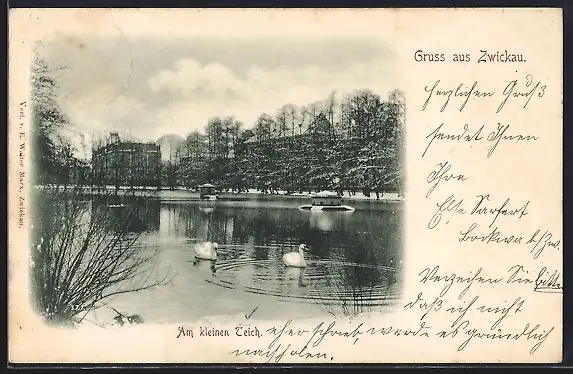 Gruss aus Zwickau.
Herzlichen Gruß
sendet Ihnen
Ihre
Else Sarfert
Bockwa b/Zw.
Verzeihen Sie bitte
daß ich nicht
Am kleinen Teich.
eher schrieb, werde es gründlich
nachholen.
Verl. v. E. Walter Marx, Zwickau.